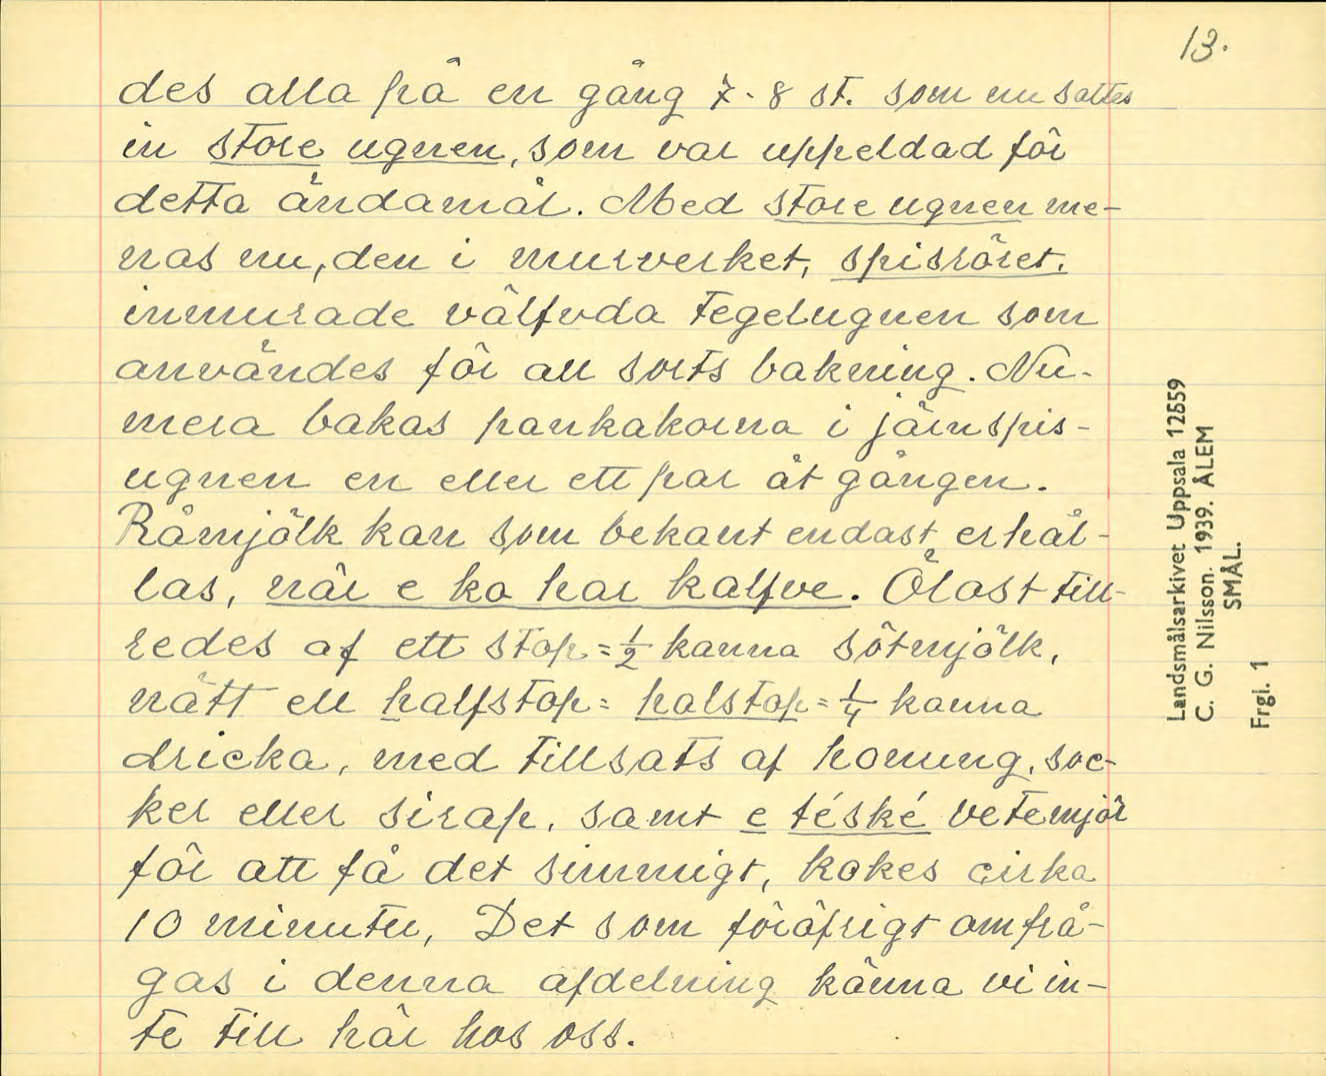 13.
des alla på en gång 7-8 st. som nu sattes
in store ugnen, som var uppeldad för
detta ändamål. Med store ugnen me-
nas nu, den i murverket, spisröret.
inmurade välfvda tegelugnen som
användes för all sorts bakning. Nu-
mera bakas pankakorna i järnspis-
ugnen en eller ett par åt gången.
Råmjölk kan som bekant endast erhål-
las, när e ko har kalfve. Ölost till-
redes af ett stop = ½ kanna sötmjölk,
nått ell halfstop = halstop = ¼ kanna
dricka, med tillsats af honung, soc-
ker eller sirap, samt e téské vetemjöl
för att få det simmigt, kokes cirka
10 minuter, Det som föröfrigt omfrå-
gas i denna afdelning känna vi in-
te till här hos oss.
Landsmålsarkivet Uppsala 12559
C. G. Nilsson. 1939. ÅLEM
SMÅL.
Frgl. 1